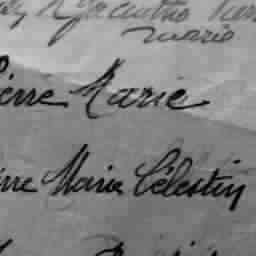 Hyacinthe
Marie
ierre Marie
rre Marie Célestin